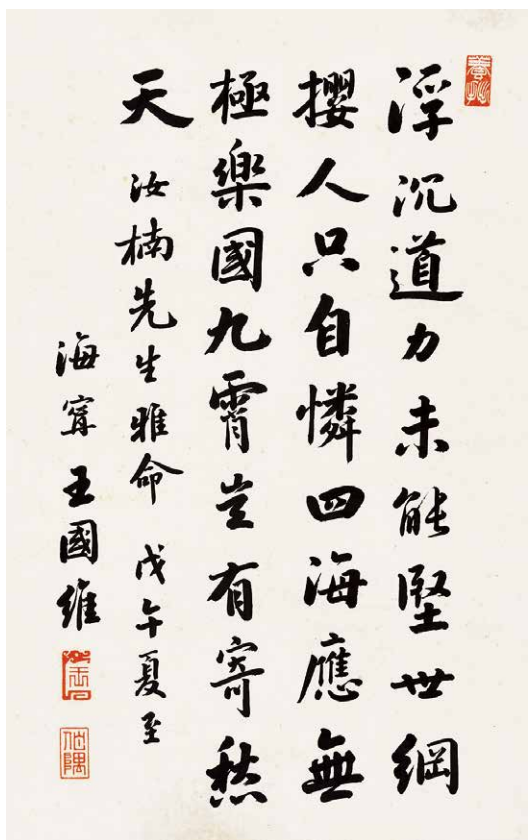 浮沉道力未能堅世綱
攖人只自憐四海應無
極樂國九霄豈有寄愁
天
汝楠先生雅命 戊午夏至
海寧王國維